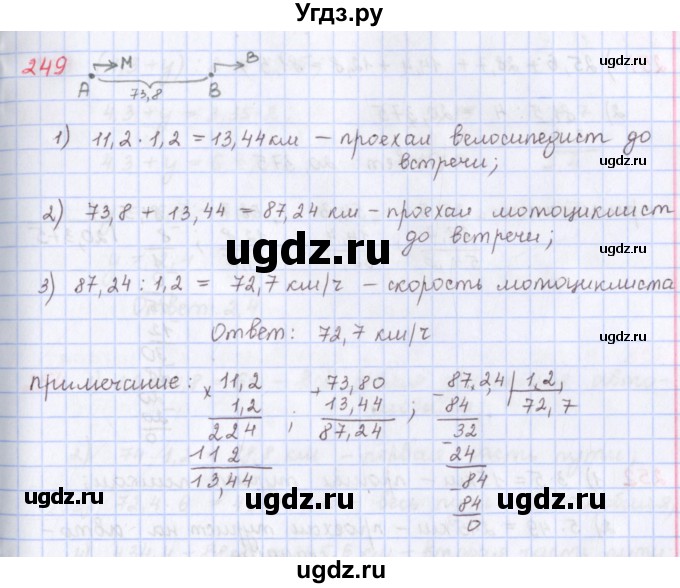 Угдз.ру
©ugdz.ru
249 М В
А 73,8 В
1) 11,2 · 1,2 = 13,44 км – проехал велосипедист до
встречи;
©ugdz.ru
2) 73,8 + 13,44 = 87,24 км – проехал мотоциклист
до встречи;
ugdz.ru
©ugdz.ru
3) 87,24 : 1,2 = 72,7 км/ч – скорость мотоциклиста
Ответ: 72,7 км/ч
©ugdz.ru
примечание: × 11,2 + 73,80 - 87,24 | 1,2
1,2 ; 13,44 ; 84 72,7
224 87,24 32
112 - 24
13,44 - 84
84
0
©ugdz.ru
ugdz.ru